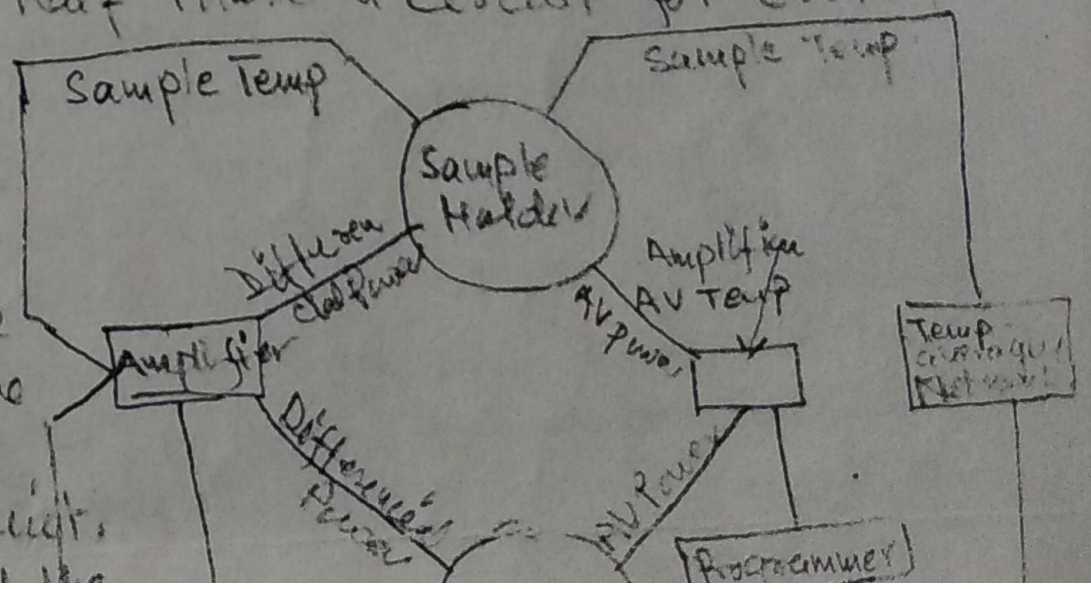 Sample Temp
Sample Temp
Sample
Holder
Differen
cial Power
Amplifier
AV Temp
AV Power
Amplifier
Temp
average
Network
Differencial
Power
AV Power
Programmer